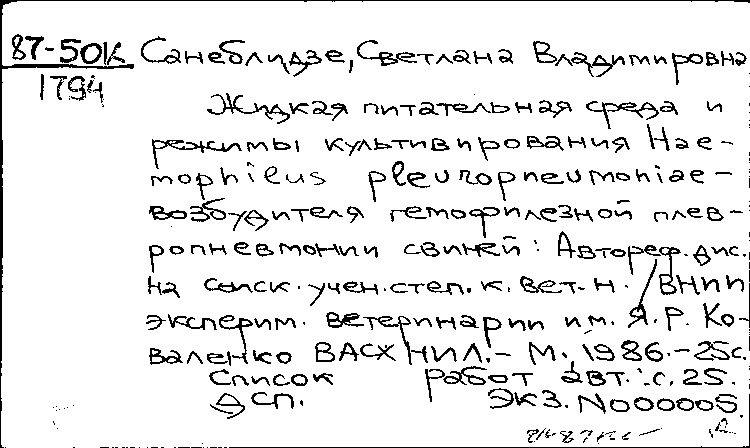 87-50К Санеблидзе, Светлана Владимировна
1794
Жидкая питательная среда и
режимы культивирования Hae-
mophilus pleuropneumoniae-
возбудителя гемофилезной плев-
ропневмонии свиней: Автореф. дис.
на соиск. учен. степ. к. вет. н. / ВНИИ
эксперим. ветеринарии им. Я. Р. Ко-
валенко ВАСХНИЛ. - М., 1986. - 25 с.
Список работ авт.: с. 25.
ДСП. Экз. N000005.